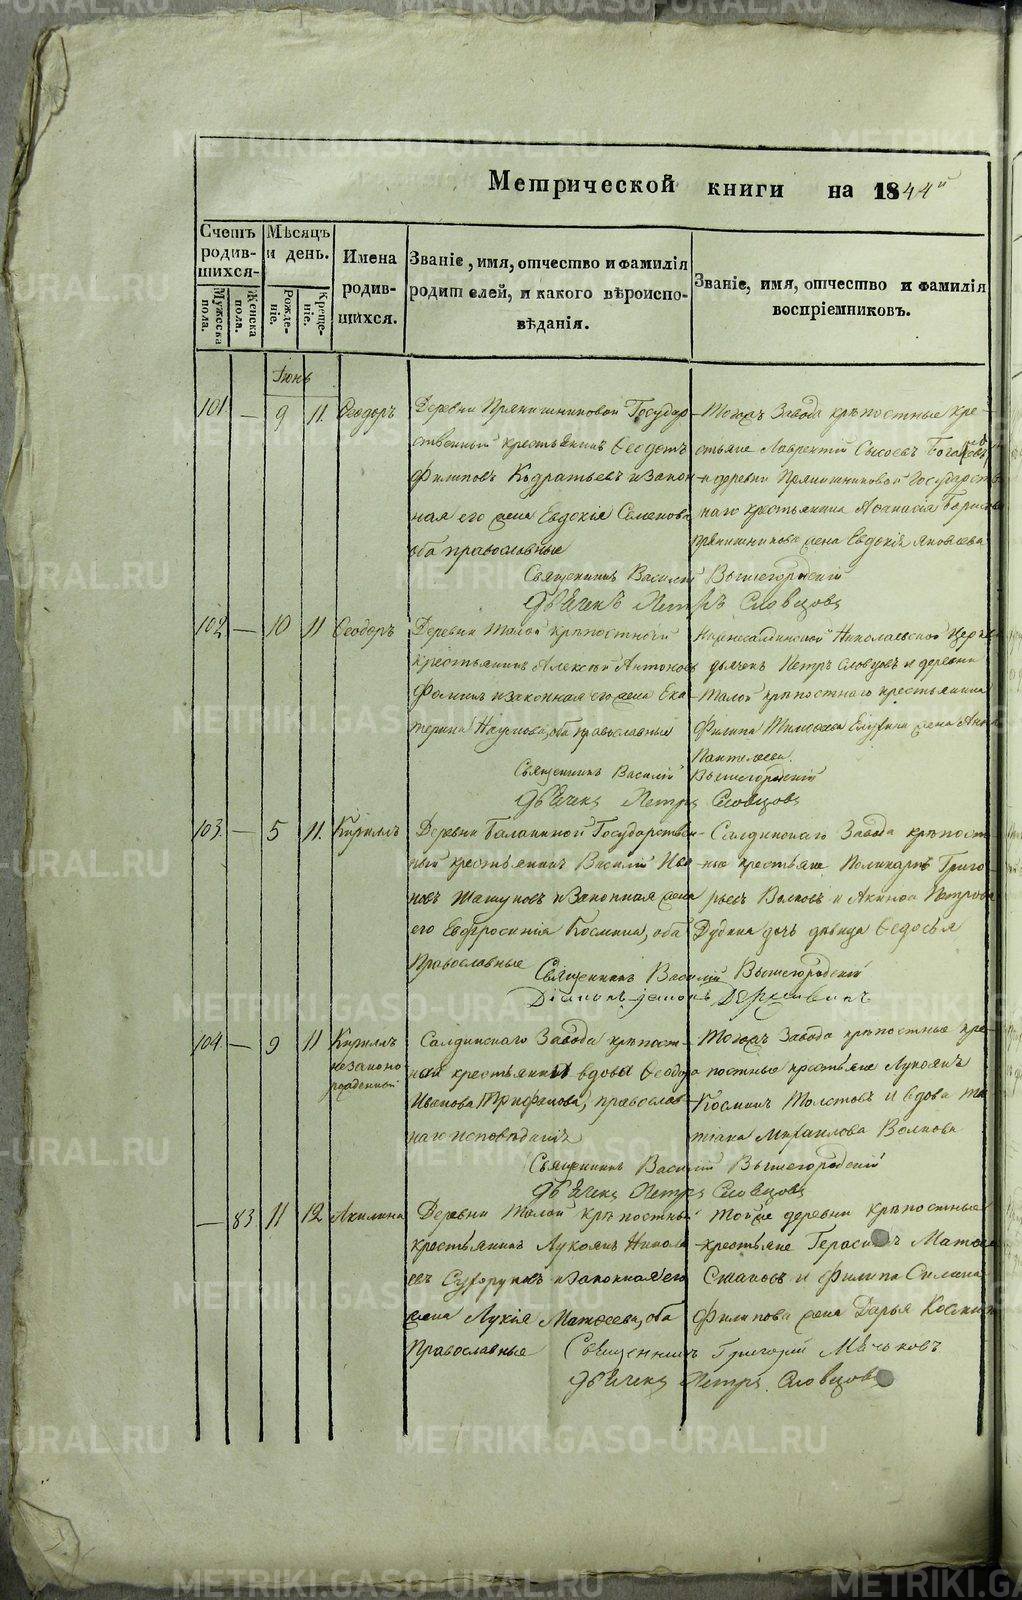 METRIKI.GASO-URAL.RU
Метрической книги на 1844й
Счетъ родив-шихся
Мѣсяцъ и день.
Имена родив-шихся.
Званіе, имя, отчество и фамилія родителей, и какого вѣроиспо-вѣданія.
Званіе, имя, отчество и фамилія воспріемниковъ.
Мужеска пола.
Женска пола.
Рожде-ніе.
Креще-ніе.
Іюнь
101 — 9 11 Ѳеодоръ
Деревни Прянишниковой Государ
ственный крестьянинъ Ѳеодотъ
Филиповъ Кодратьевъ и закон
ная его жена Евдокія Семенова
оба православные
Тогожъ Завода крѣпостные кре
стьяне Лаврентій Сысоевъ
и деревни Прянишниковой Государст
наго крестьянина Аѳанасія Борисова
Прянишникова жена Евдокія Яковлева
Священникъ Василій Вышегородскій
Дьячекъ Петръ Словцовъ
102 — 10 11 Ѳеодоръ
Деревни Талой крѣпостной
крестьянинъ Алексѣй Антоновъ
Фоминъ и законная его жена Ека
терина Наумова, оба православные
Николаевской Церкви
дьячекъ Петръ Словцовъ и деревни
Талой крѣпостнаго крестьянина
Филипа жена Анна
Пантелеева.
Священникъ Василій Вышегородскій
Дьячекъ Петръ Словцовъ
103. — 5 11. Кирилъ
Деревни Балакиной Государствен
ный крестьянинъ Василій Ива
новъ Шатуновъ и Законная жена
его Евфросинія Космина, оба
Православные
Салдинскаго Завода крѣпост
ные крестьяне Поликарпъ Григо
рьевъ Волковъ и Акинфа Петрова
Дубина дочь дѣвица Ѳедосья
Священникъ Василій Вышегородскій
Діаконъ Державинъ
104. — 9 11 Кирилъ
незаконо
рожденный
Салдинскаго Завода крѣпост
ный крестьянки вдовы Ѳеодоры
Иванова Трифанова, православ
наго исповѣданія
Тогожъ Завода крѣпостные кре
постные крестьяне Лукоянъ
Косминъ Толстовъ и вдова Та
тіана Михаилова Волкова
Священникъ Василій Вышегородскій
Дьячекъ Петръ Словцовъ
— 83 11 12 Акилина
Деревни Талой крѣпостный
крестьянинъ Лукоянъ Никола
евъ и законная его
жена Лукія Матѳеева, оба
Православные
Тойже деревни крѣпостные
крестьяне Герасимъ
и Филипа Силина
Филипова жена Дарья Космина
Священникъ Григорій Мѣньковъ
Дьячекъ Петръ Словцовъ